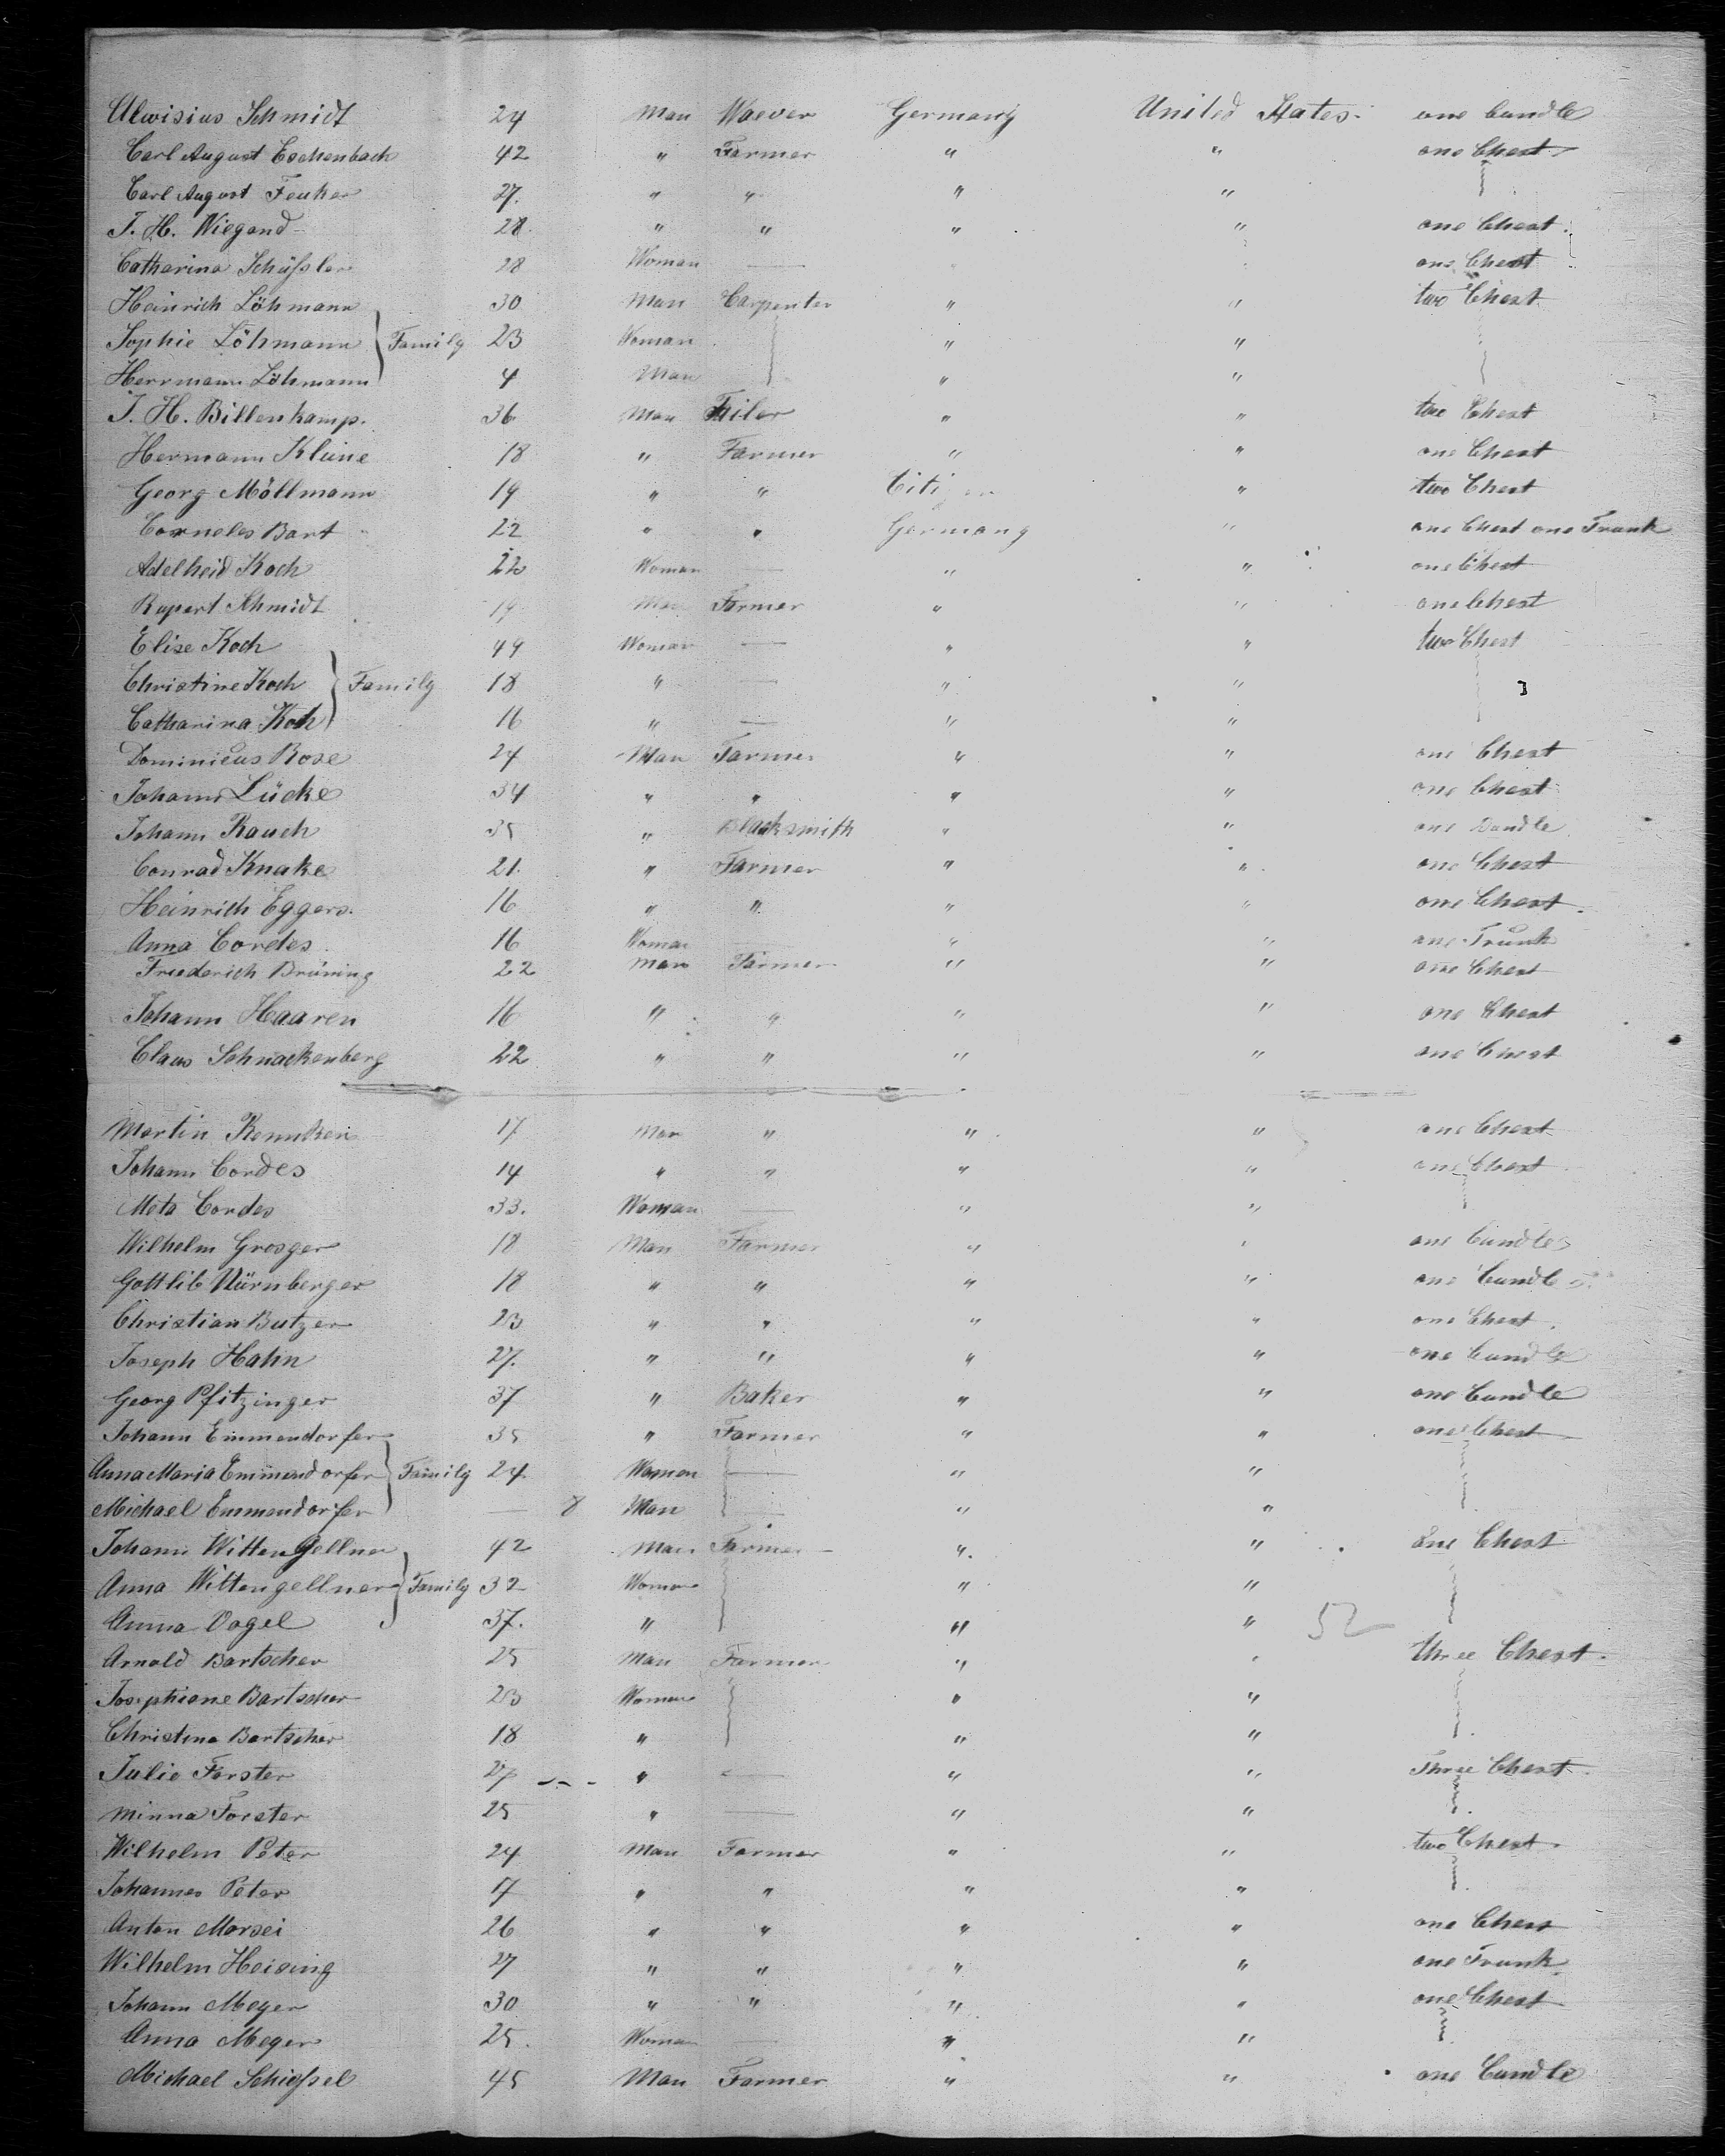 Alwisius Schmidt 24 Man Waever Germany United States. one bundle
Carl August Eschenbach 42 " Farmer " " one Chest
Carl August Feuker 27. " " " "
J. H. Wiegand 28 " " " " one Chest.
Catharina Schüssler 28 Woman — one Chest
Heinrich Löhmann 30 Man Carpenter " " two Chest
Sophie Löhmann } Family 23 Woman " "
Herrmann Löhmann 4 Man " "
J. H. Billenkamp. 36 Man " " two Chest
Hermann Kleine 18 " Farmer " " one Chest
Georg Möllmann 19 " " " two Chest
Corneles Bart 22 " " Germany " one Chest one Trunk
Adelheid Koch 22 Woman — " " one Chest
Rupert Schmidt 19 Man Farmer " " one Chest
Elise Koch 49 Woman — " " two Chest
Christine Koch } Family 18 " — " "
Catharina Koch 16 " — " "
Dominicus Rose 24 Man Farmer " " one Chest
Johann Lücke 34 " " " " one Chest
Johann Rauch 35 " Blacksmith " " one Bundle
Conrad Knake 21. " Farmer " " one Chest
Heinrich Eggers. 16 " " " " one Chest.
Anna Cordes 16 Woman " " one Trunk
Friederich Brüning 22 man Farmer " " one Chest
Johann Haaren 16 " " " " one Chest
Claus Schnackenberg 22 " " " " one Chest
Martin 17 Man " " " one Chest
Johann Cordes 14 " " " " one Chest
Meta Cordes 33. Woman — " "
Wilhelm Grosger 18 Man Farmer " " one bundle
Gottlib Nürnberger 18 " " " " one bundle
Christian Butzer 23 " " " " one Chest.
Joseph Hahn 27. " " " " one bundle
Georg Pfitzinger 37 " Baker " " one bundle
Johann Emmendorfer 35 " Farmer " " one Chest
Anna Maria Emmendorfer } Family 24. Woman — " "
Michael Emmendorfer — 8 Man — " "
Johann Wittengellner 42 Man Farmer " " one Chest
Anna Wittengellner } Family 32 Woman " "
Anna Vogel 37. " " " 52
Arnold Bartscher 25 Man Farmer " " three Chest.
Josephiane Bartscher 23 Woman " "
Christina Bartscher 18 " " "
Julie Forster 27 " — " " Three Chest.
Minna Forster 25 " — " "
Wilhelm Peter 24 Man Farmer " " two Chest.
Johannes Peter 17 " " " "
Anton Morsei 26 " " " " one Chest
Wilhelm Heising 27 " " " " one Trunk
Johann Meyer 30 " " " " one Chest
Anna Meyer 25. Woman — " "
Michael Schiessel 45 Man Farmer " " one bundle